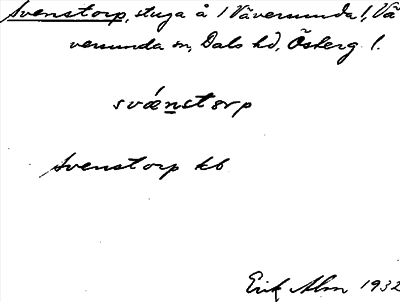 Svenstorp, stuga å 1 Väversunda 1, Vä
versunda sn, Dals hd, Östergl.
svǽnstɔrp
Svenstorp kb
Erik Alm 1932